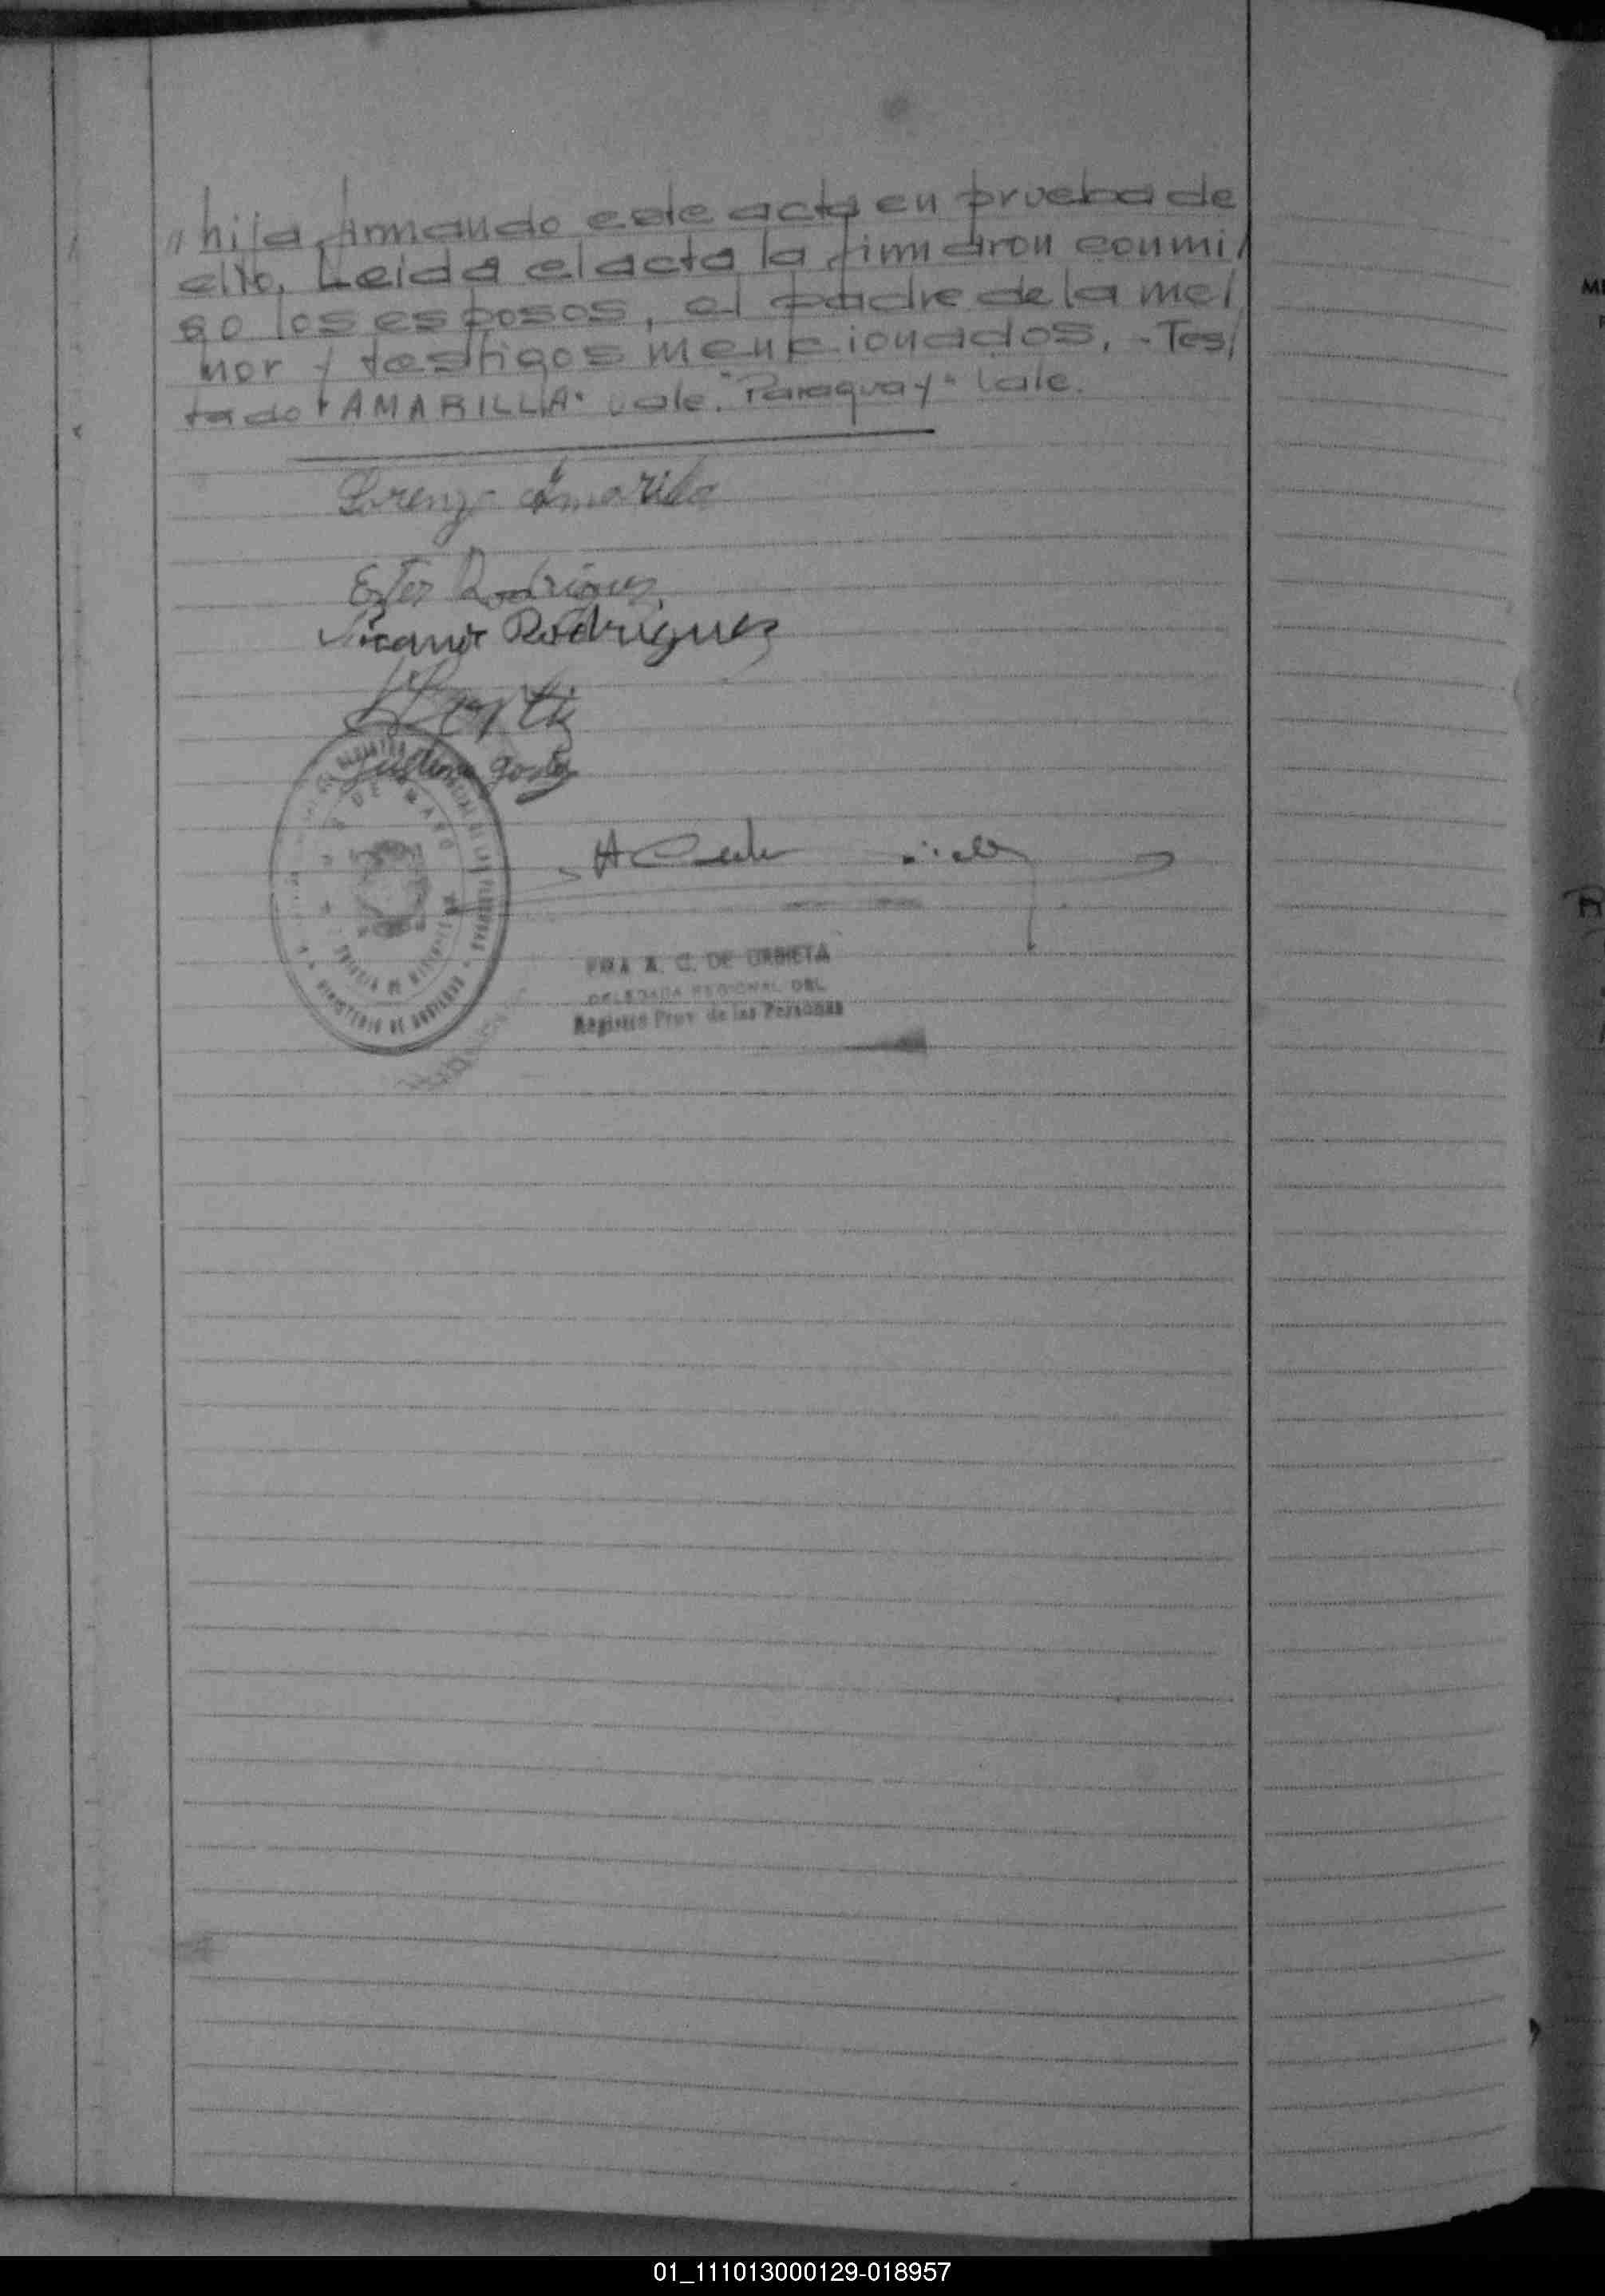 " hija, firmando este acta en prueba de
ello. Leida el acta la firmaron conmi/
go los esposos, el padre de la me/
nor y testigos mencionados. - Tes/
tado "AMARILLA" vale. "Paraguay" Vale.
Lorenzo Amarilla
Ester Rodriguez
Nicanor Rodriguez
A. C. DE URBIETA
DELEGADA REGIONAL DEL
Registro Prov. de las Personas
REGISTRO PROVINCIAL DE LAS PERSONAS
MINISTERIO DE GOBIERNO
MI
01_111013000129-018957